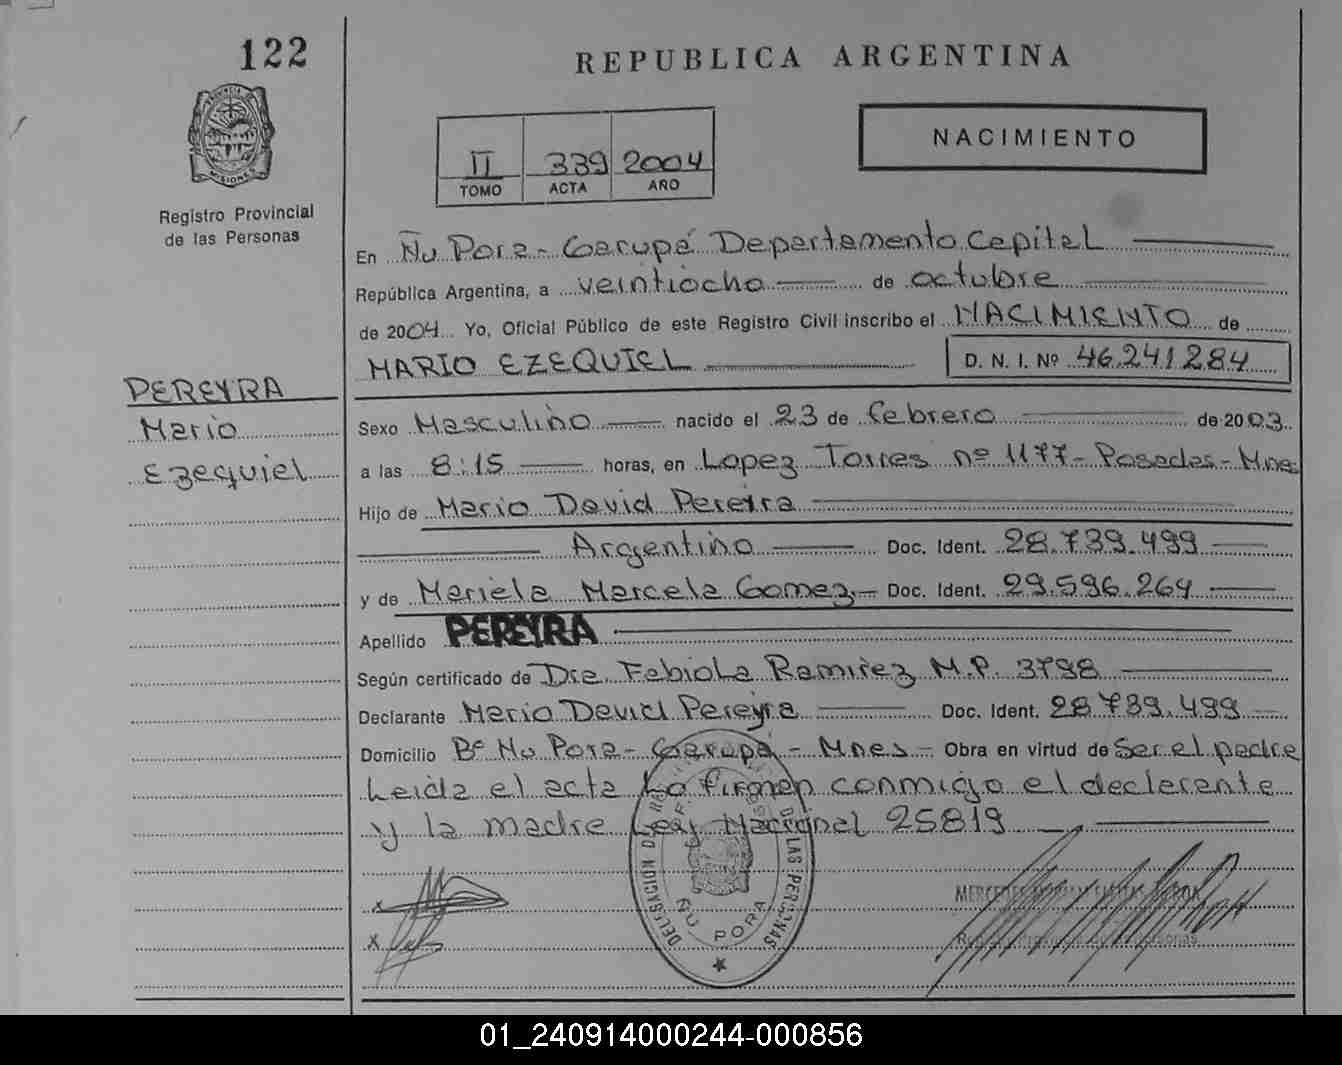 122
REPUBLICA ARGENTINA
PROVINCIA DE MISIONES
Registro Provincial
de las Personas
II 339 2004
TOMO ACTA AÑO
NACIMIENTO
En Ñu Pora - Garupá Departamento Capital
República Argentina, a veintiocho de octubre
de 2004 Yo, Oficial Público de este Registro Civil inscribo el NACIMIENTO de
MARIO EZEQUIEL D. N. I. Nº 46.241.284
PEREYRA
Mario
Ezequiel
Sexo Masculino nacido el 23 de febrero de 2003
a las 8:15 horas, en Lopez Torres nº 1177 - Posadas - Mnes
Hijo de Mario David Pereyra
Argentino Doc. Ident. 28.739.499
y de Mariela Marcela Gomez.- Doc. Ident. 29.596.264
Apellido PEREYRA
Según certificado de Dra Fabiola Ramirez M.P. 3798
Declarante Mario David Pereyra Doc. Ident. 28.739.499
Domicilio Bº Ñu Pora - Garupá - Mnes - Obra en virtud de Ser el padre
Leida el acta la firman conmigo el declarante
y la madre Ley Nacional 25819
DELEGACION DE LAS PERSONAS
ÑU PORA
MERCEDES
01_240914000244-000856